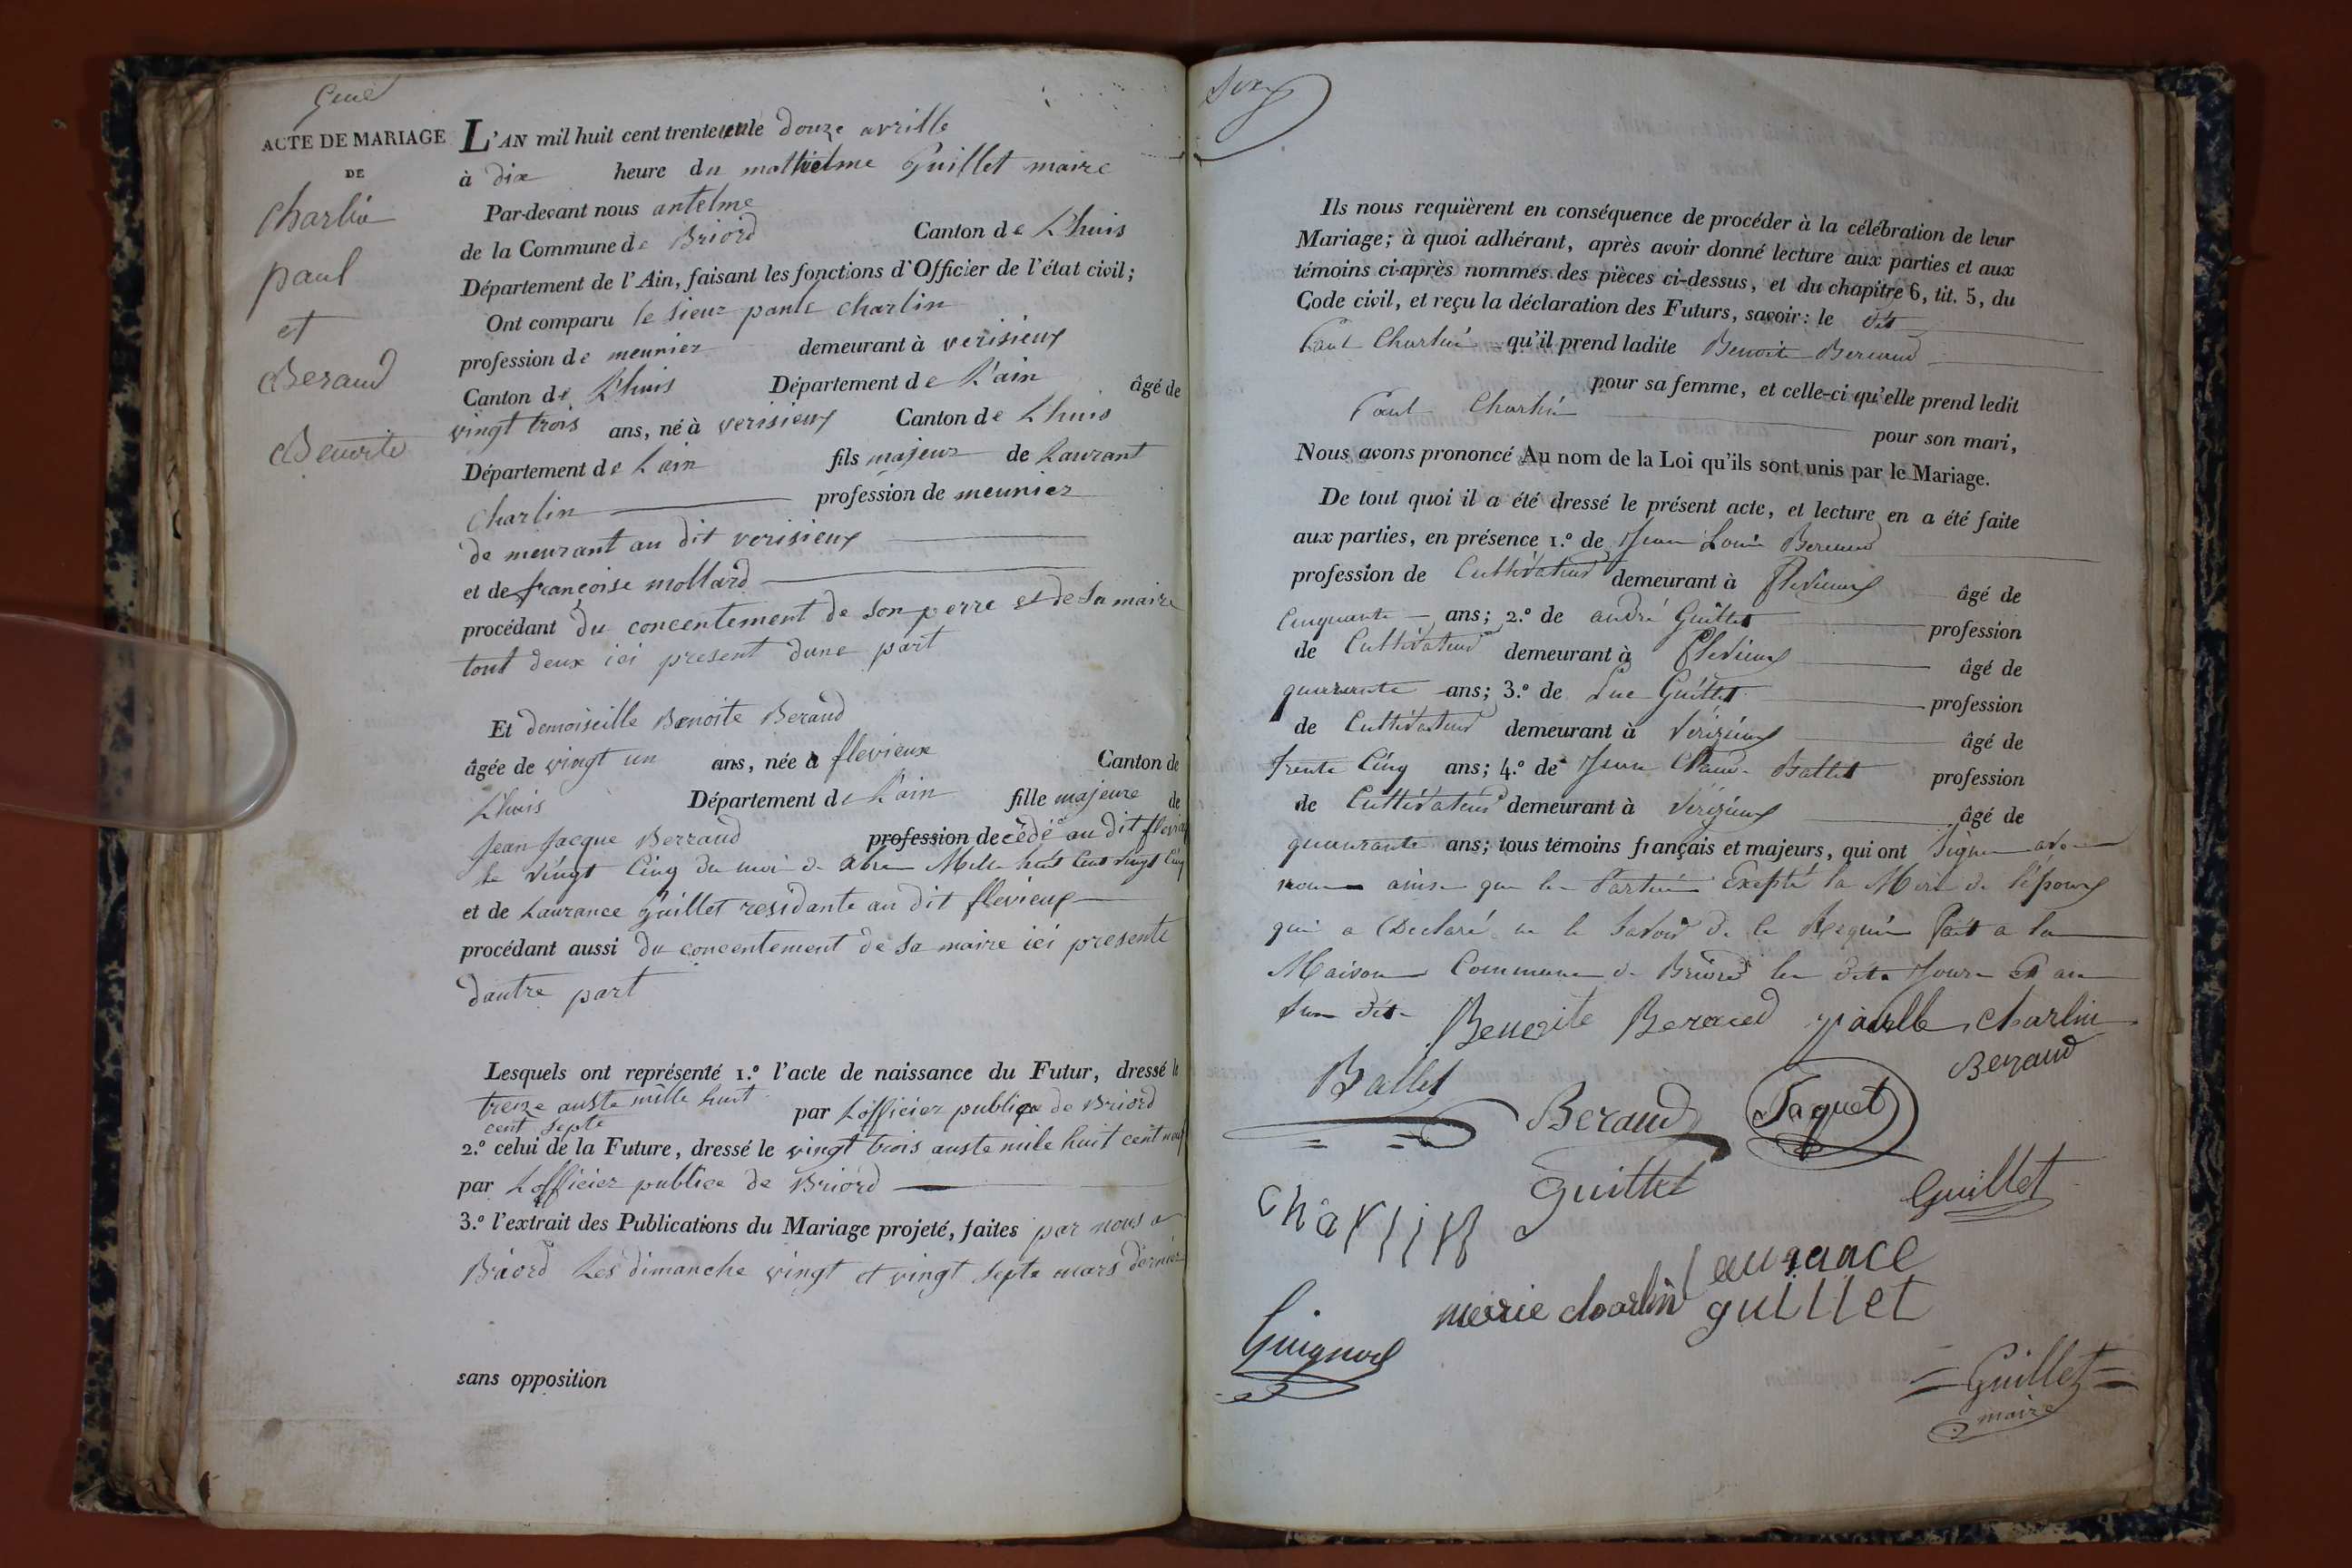 ACTE DE MARIAGE
DE
Charlin
paul
et
Beraud
Benoite
L'AN mil huit cent trente un le douze avrille
à dix heure du mat
Par-devant nous antelme Guillet maire
de la Commune de Briord Canton de Lhuis
Département de l'Ain, faisant les fonctions d'Officier de l'état civil;
Ont comparu le sieur paule Charlin
profession de meunier demeurant à verisieux
Canton de Lhuis Département de L'ain âgé de
vingt trois ans, né à verisieux Canton de Lhuis
Département de Lain fils majeur de Laurant
Charlin profession de meunier
de meurant au dit verisieux
et de françoise mollard
procédant du concentement de son perre et de sa maire
tout deux ici present dune part
Et demoiseille Benoite Beraud
âgée de vingt un ans, née à flevieux Canton de
Lhuis Département de Lain fille majeure de
Jean Jacque Berraud profession decédé au dit flevieux
le vingt Cinq du moi de Mille huit Cent vingt Cinq
et de Laurance Guillet residante au dit flevieux
procédant aussi du concentement de sa maire ici presente
dautre part
Lesquels ont représenté 1.º l'acte de naissance du Futur, dressé le
treize auste mille huit cent septe par Lofficier publique de Briord
2.º celui de la Future, dressé le vingt trois auste mile huit cent neuf
par Lofficier publice de Briord
3.º l'extrait des Publications du Mariage projeté, faites par nous a
Briord Les dimanche vingt et vingt septe mars dernier
sans opposition
Ils nous requièrent en conséquence de procéder à la célébration de leur
Mariage; à quoi adhérant, après avoir donné lecture aux parties et aux
témoins ci-après nommés des pièces ci-dessus, et du chapitre 6, tit. 5, du
Code civil, et reçu la déclaration des Futurs, savoir: le dit
Paul Charlin qu'il prend ladite Benoite Beraud
pour sa femme, et celle-ci qu'elle prend ledit
Paul Charlin pour son mari,
Nous avons prononcé Au nom de la Loi qu'ils sont unis par le Mariage.
De tout quoi il a été dressé le présent acte, et lecture en a été faite
aux parties, en présence 1.º de Jean Louis Beraud
profession de Cultivateur demeurant à flevieux âgé de
Cinquante ans; 2.º de andré Guillet profession
de Cultivateur demeurant à flevieux âgé de
quarante ans; 3.º de Luc Guillet profession
de Cultivateur demeurant à Vérizieux âgé de
trente Cinq ans; 4.º de Jean Claude Ballet profession
de Cultivateur demeurant à Vérizieux âgé de
quarante ans; tous témoins français et majeurs, qui ont Signé avec
nous ainsi que les Parties Exepté la Mere de l'époux
qui a Declaré ne le Savoir de le Requis fait a la
Maison Commune de Briord les dits Jour Et an
sus dit
Benoite Beraud paulle charlin
Ballet Beraud Jaquet Beraud
charlin Guillet Guillet
merie charlin laurance guillet
Guignard
Guillet
maire